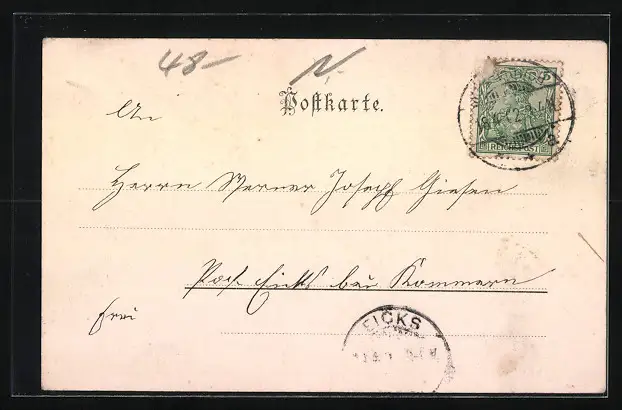 48-
N
Postkarte.
An
REICHSPOST
Herrn Werner Joseph Giesen
Post Eicks bei Kommern
frei
EICKS